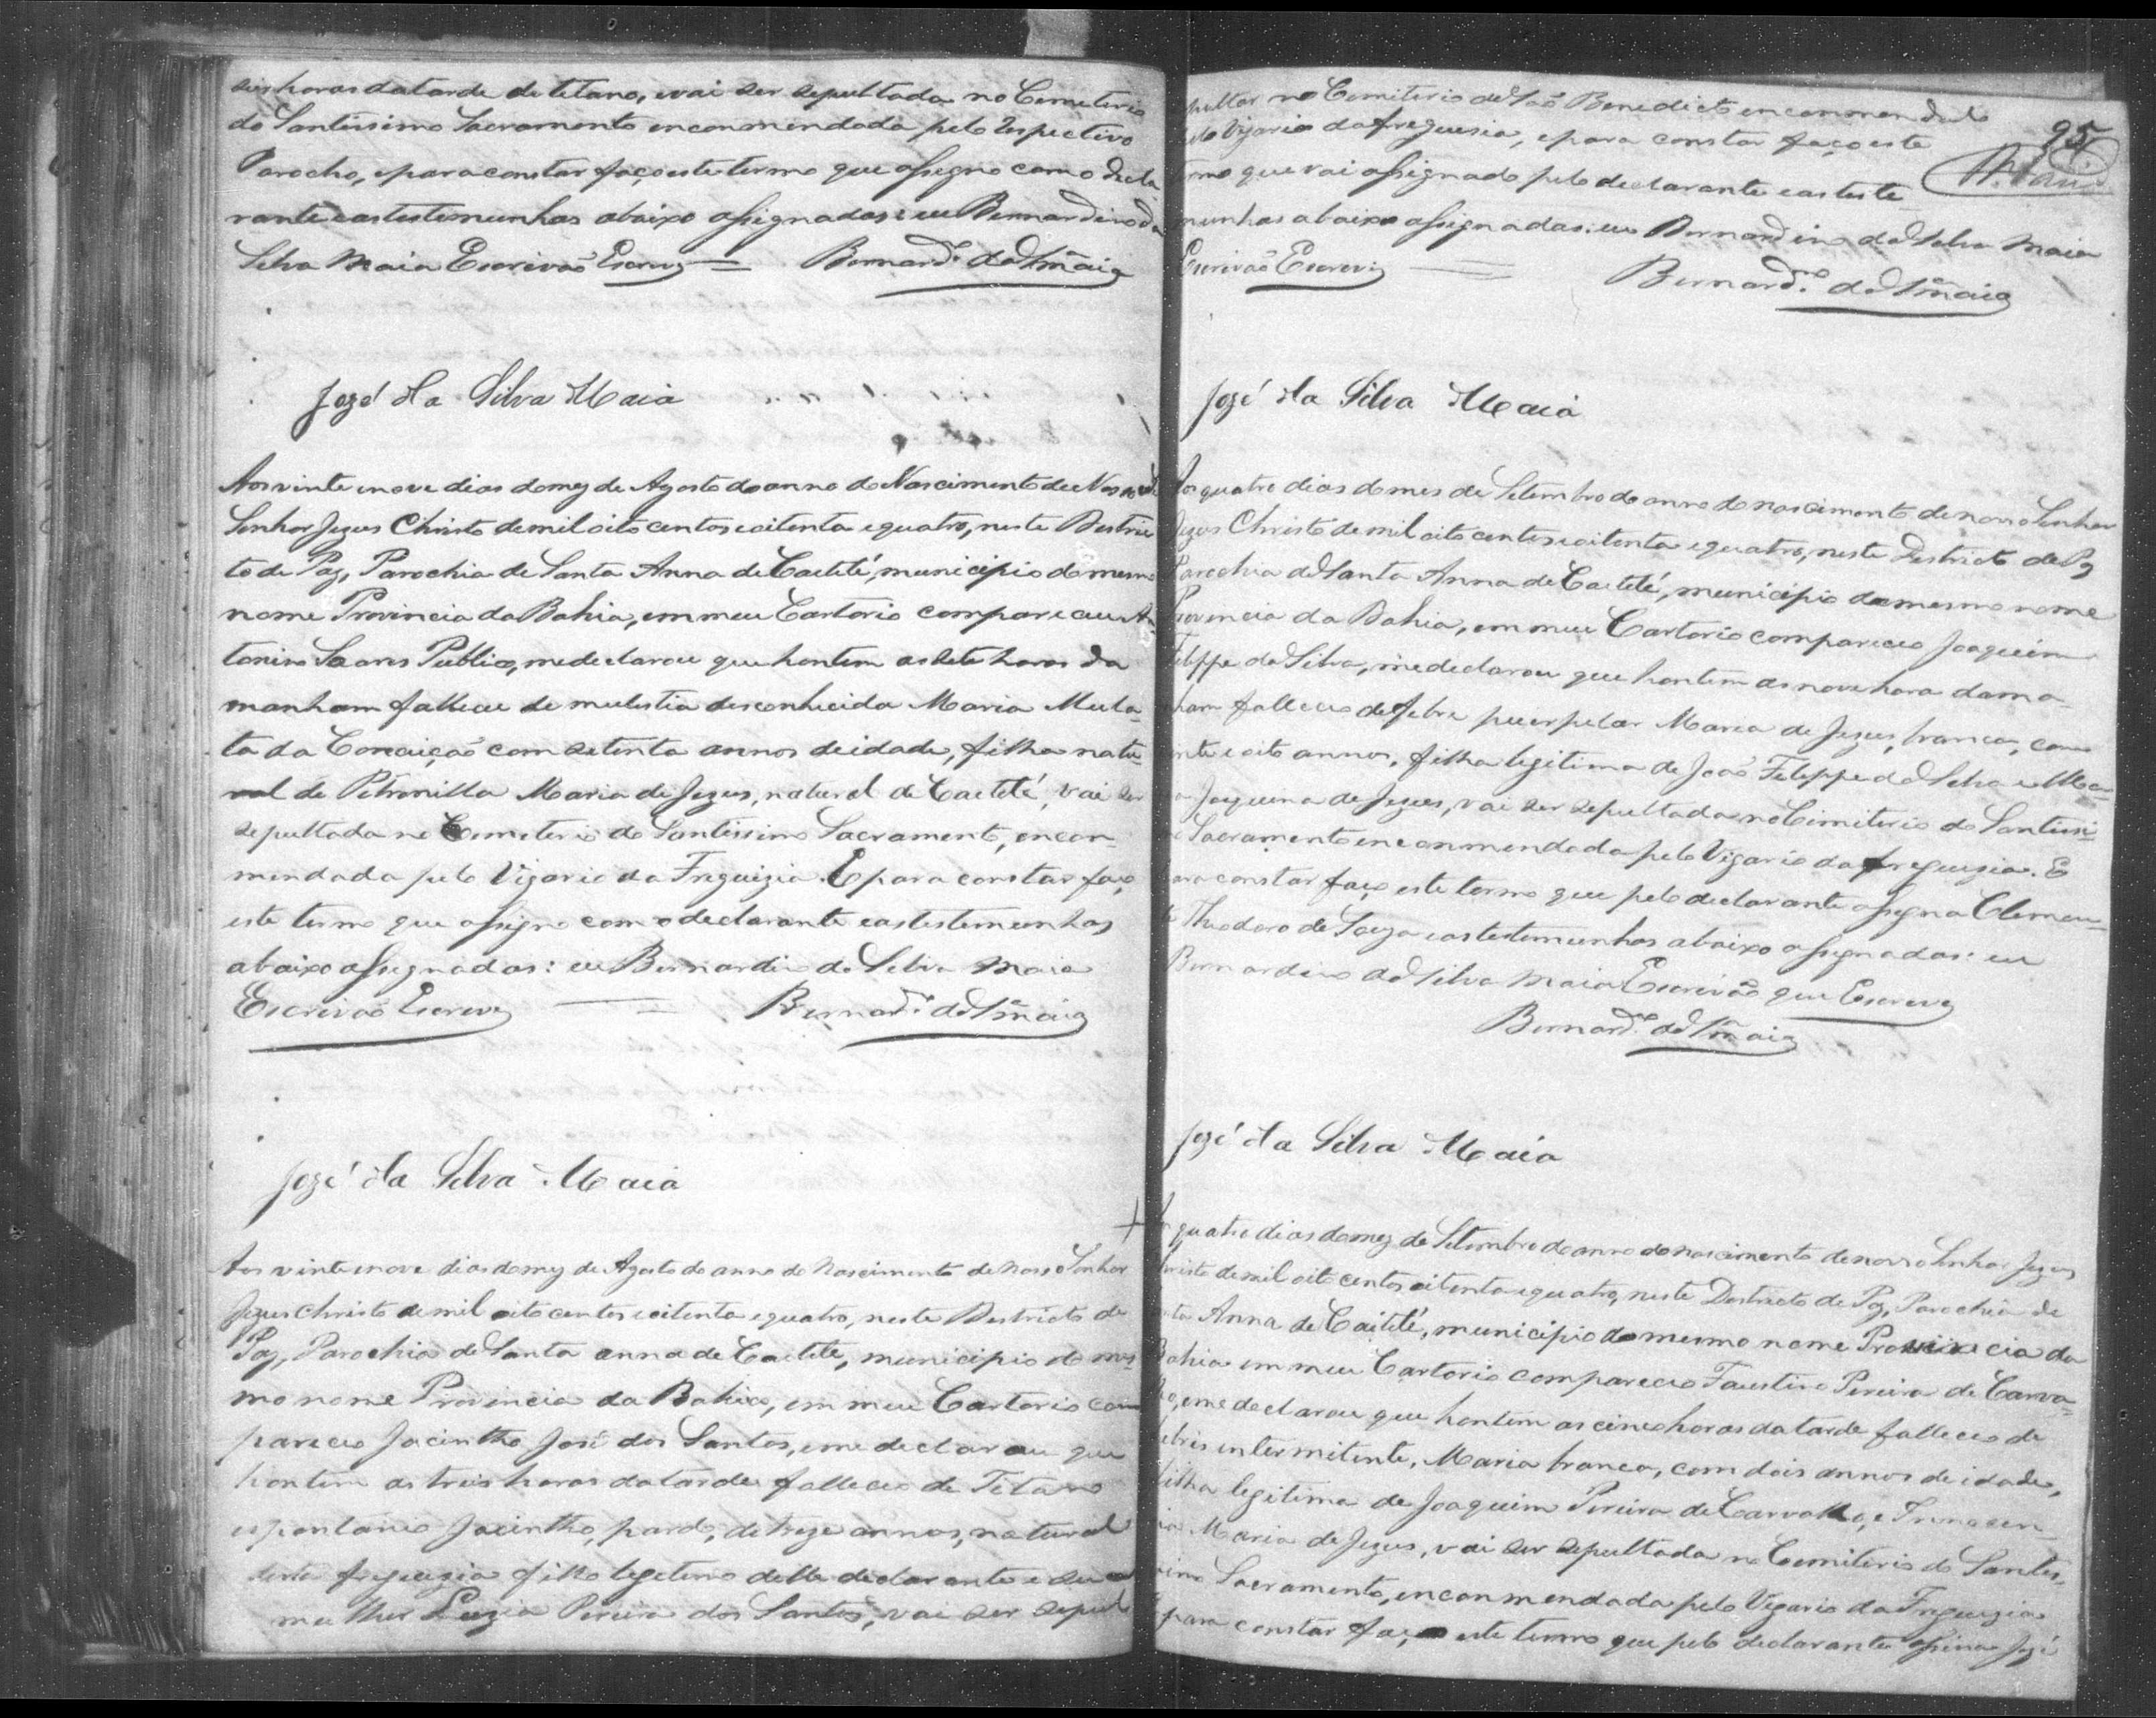 seis horas da tarde de tetano, e vai ser sepultada no Cemeterio
do Santissimo Sacramento enconmendada pelo respectivo
Parocho, e para constar faço este termo que assigno com o decla-
rante e as testemunhas abaixo assignadas: eu Bernardino da
Silva Maia Escrivaõ Escrevy Bernard.º da S.ª Maia
José da Silva Maia
Aos vinte e nove dias do mez de Agosto do anno do Nascimento de Nosso
Senhor Jezus Christo de mil oito centos e oitenta e quatro, neste Destric
to de Paz, Parochia de Santa Anna de Caetité, municipio do mesmo
nome Provincia da Bahia, em meu Cartorio compareceu An-
tonino Soares Publio, me declarou que hontem as sete horas da
manham falleceu de mulestia desconhecida Maria Mula-
ta da Conceiçaõ com setenta annos de idade, filha natu-
ral de Petronilla Maria de Jezus, natural de Caetité, vai ser
sepultada no Cemeterio do Santissimo Sacramento, encon-
mendada pelo Vigario da Freguizia. E para constar faço
este termo que assigno com o declarante e as testemunhas
abaixo assignadas: eu Bernardino da Silva Maia
Escrivaõ Escrevy Bernard.º da S.ª Maia
José da Silva Maia
Aos vinte e nove dias do mez de Agosto do anno do Nascimento de Nosso Senhor
Jezus Christo de mil oito centos e oitenta e quatro, neste Destricto de
Paz, Parochia de Santa anna de Caetite, municipio do mes-
mo nome Provincia da Bahia, em meu Cartorio com
pareceo Jacintho José dos Santos, e me declarou que
hontem as tres horas da tarde falleceo de Tetano
espontanio Jacintho, pardo, de treze annos, natural
desta freguezia filho legetimo delle declarante e sua
mulher Luzia Pereira dos Santos, vai ser sepul
95
pultar no Cemiterio de Saõ Benedicto enconmendado
pelo Vigario da freguesia, e para constar faço este
termo que vai assignado pelo declarante e as teste
munhas abaixo assignadas: eu Bernardino da Silva Maia
Escrivaõ Escrevy Bernard.no da S.ª Maia
José da Silva Maia
Aos quatro dias do mes de Setembro do anno do nascimento de nosso Senhor
Jezus Christo de mil oito centos e oitenta e quatro, neste Destricto de Pz
Parochia de Santa Anna de Caetité, municipio do mesmo nome
Provincia da Bahia, em meu Cartorio compareceo Joaquim
Felippe da Silva, me declarou que hontem as nove hora da ma-
nham falleceo de febre puerpelar Maria de Jezus, branca, com
vinte e oito annos, filha legitima de Joaõ Felippe da Silva e Ma-
ria Joaquina de Jezus, vai ser sepultada no Cimiterio do Santissi-
mo Sacramento enconmendada pelo Vigario da freguezia. E
para constar faço este termo que pelo declarante assigna Clemen-
te Theodoro de Souza e as testemunhas abaixo assignadas: eu
Bernardino da Silva Maia Escrivaõ que Escrevy
Bernard.º da S.ª Maia
José da Silva Maia
Aos quatro dias do mez de Setembro do anno do nascimento de nosso Senhor Jezus
Christo de mil oito centos oitenta e quatro, neste Destricto de Pz, Parochia de
Santa Anna de Caitité, municipio do mesmo nome Provincia da
Bahia em meu Cartorio compareceo Faustino Pereira de Carva-
lho, e me declarou que hontem as cinco horas da tarde falleceo de
febris intermitente, Maria branca, com dois annos de idade,
filha legitima de Joaquim Pereira de Carvalho, e Innocen-
cia Maria de Jezus, vai ser sepultada no Cemiterio do Santis-
simo Sacramento, enconmendada pelo Vigario da Freguezia
E para constar faço este termo que pelo declarante assina José